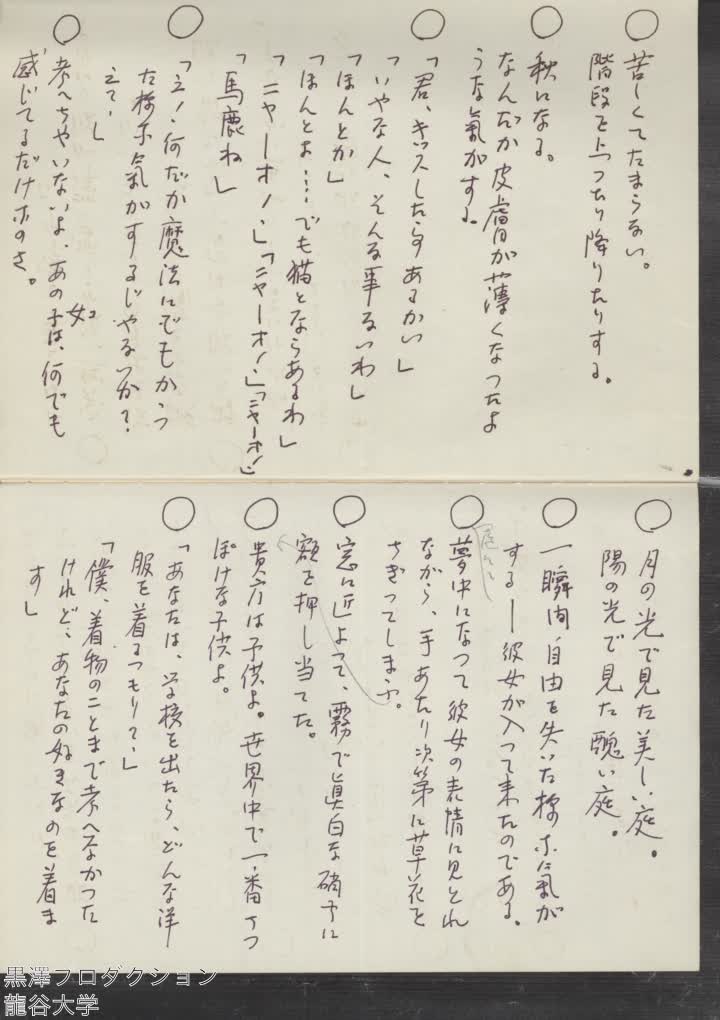 ○ 苦しくてたまらない。
階段を上つたり降りたりする。
○ 秋になる。
なんだか皮膚が薄くなつたよ
うな氣がする。
○ 「君、キスしたらすあるかい」
「いやな人、そんな事ないわ」
「ほんとか」
「ほんとよ…でも猫とならあるわ」
「ニャーオ！」「ニャーオ！」「ニャーオ！」
「馬鹿ね」
○ 「え！何だか魔法にでもかゝつ
た様な氣がするじやないか？
えて、」
○ 考へちやいないよ、あの子は、何でも
女
感じてるだけなのさ。
○ 月の光で見た美しい庭。
陽の光で見た醜い庭。
○ 一瞬間自由を失いた様な氣が
する―彼女が入つて来たのである。
○ 夢中になつて彼女の表情に見とれ
ながら、手あたり次第に草花を
ちぎつてしまふ。
○ 窓に近よつて、霧で眞白な硝子に
額を押し当てた。
○ 貴方は子供よ。世界中で一番さつ
ぽけな子供よ。
○ 「あなたは、学校を出たら、どんな洋
服を着るつもり？」
「僕、着物のことまで考へなかつた
けれど、あなたの好きなのを着ま
す」
黒澤プロダクション
龍谷大学